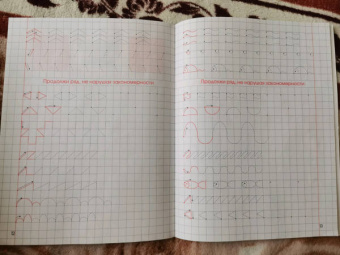 Продолжи ряд, не нарушая закономерности.
Продолжи ряд, не нарушая закономерности.